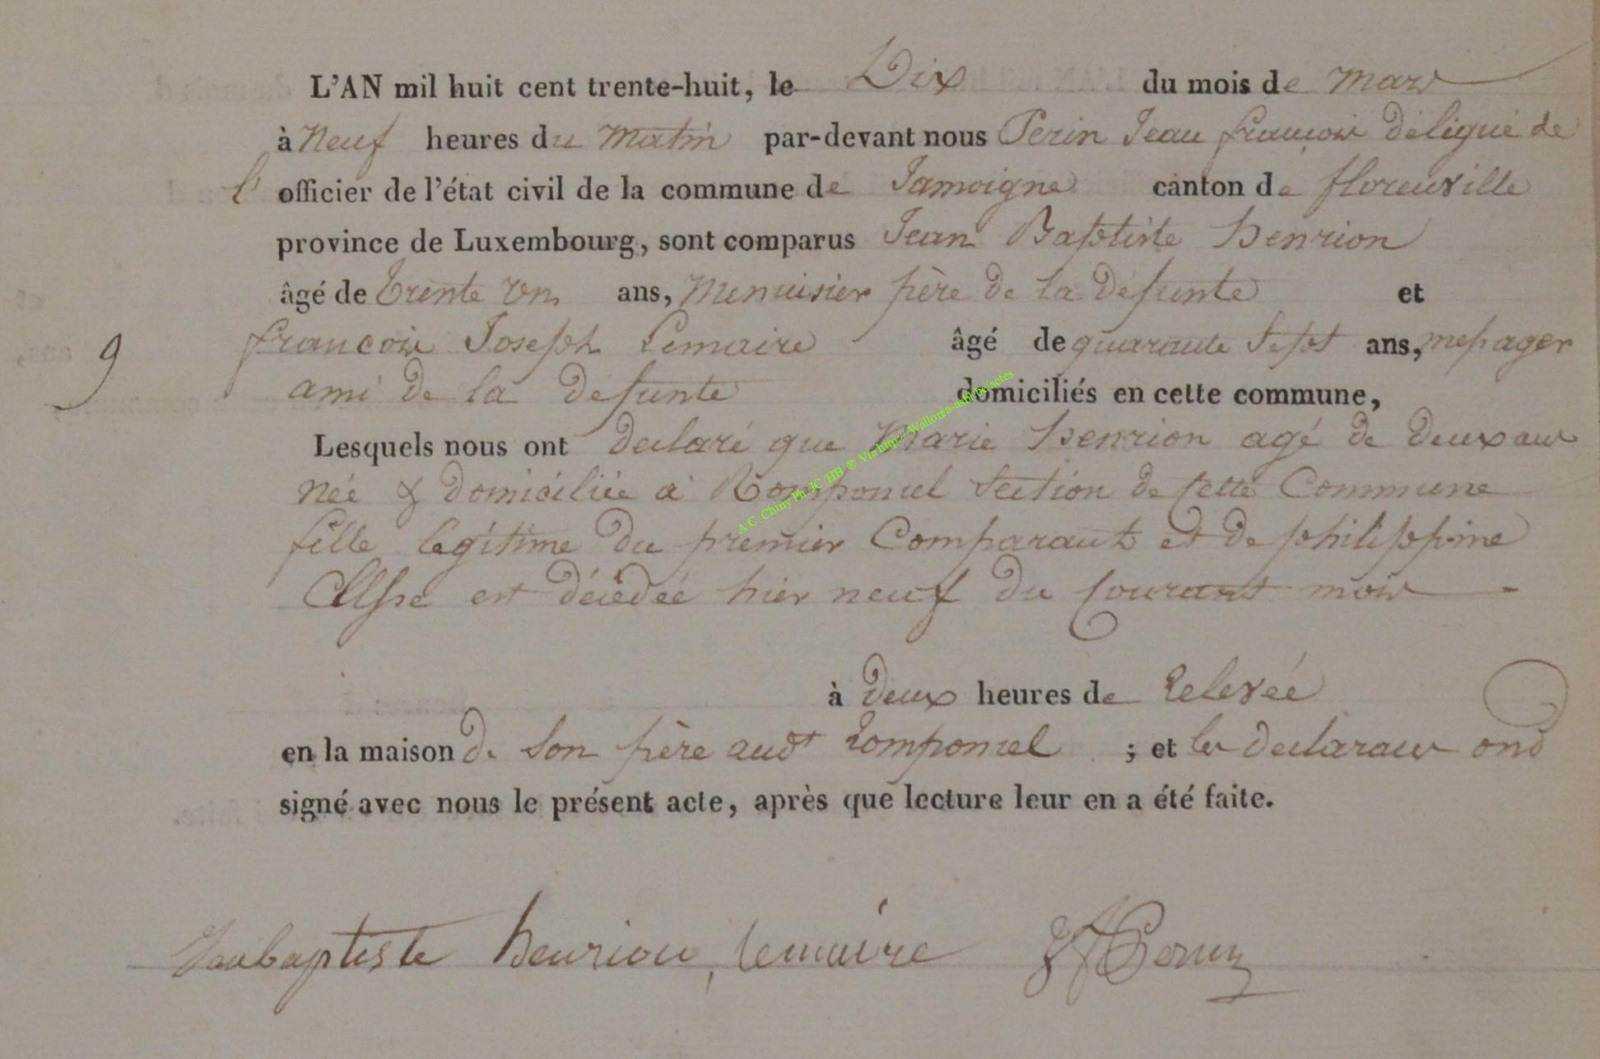 L'AN mil huit cent trente-huit, le Dix du mois de mars
à Neuf heures du Matin par-devant nous Perin Jean françois délégué de
l' officier de l'état civil de la commune de Jamoigne canton de florenville
province de Luxembourg, sont comparus Jean Baptiste henrion
âgé de Trente un ans, Menuisier père de la défunte et
françois Joseph Lemaire âgé de quarante Sept ans, messager
9
ami de la défunte domiciliés en cette commune,
Lesquels nous ont declaré que Marie henrion agé de deux ans
née & domiciliée à Romponcel Section de cette Commune
fille legitime du premier Comparant et de philippine
est décédée hier neuf du Courant mois
à deux heures de relevée
en la maison de son père audt romponcel ; et les declarans ont
signé avec nous le présent acte, après que lecture leur en a été faite.
Jeanbaptiste henrion, lemaire JF Perin